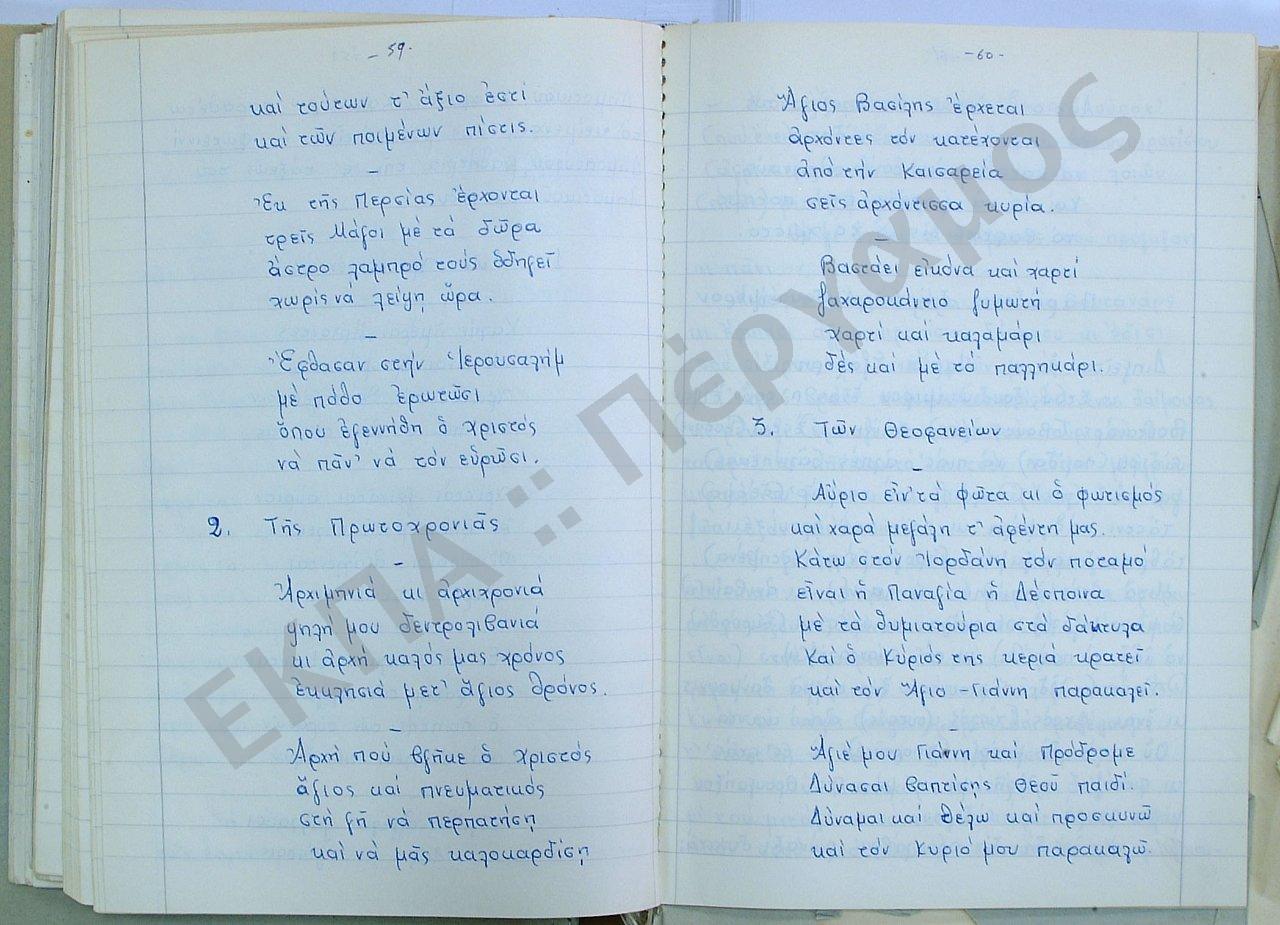 - 59.
καί τούτων τ' ἄξιο ἐστί
καί τῶν ποιμένων πίστις.
-
Ἐκ τῆς Περσίας ἔρχονται
τρεῖς Μάγοι μέ τά δῶρα
ἄστρο λαμπρό τούς ὁδηγεῖ
χωρίς νά λείψῃ ὥρα.
-
Ἔφθασαν στήν Ἱερουσαλήμ
μέ πόθο ἐρωτῶσι
ὅπου ἐγεννήθη ὁ χριστός
νά πᾶν' νά τόν εὑρῶσι.
2. Τῆς Πρωτοχρονιᾶς
-
Ἀρχιμηνιά κι ἀρχιχρονιά
ψηλή μου δεντρολιβανιά
κι ἀρχή καλός μας χρόνος
ἐκκλησιά μετ' ἅγιος θρόνος.
-
Ἀρχή πού βγῆκε ὁ χριστός
ἅγιος καί πνευματικός
στή γῆ νά περπατήσῃ
καί νά μᾶς καλοκαρδίσῃ
- 60 -
Ἅγιος Βασίλης ἔρχεται
ἀρχόντες τόν κατέχονται
ἀπό τήν Καισαρεία
σεῖς ἀρχόντισσα κυρία.
-
Βαστάει εἰκόνα καί χαρτί
ζαχαροκάντιο ζυμωτή
χαρτί καί καλαμάρι
δές καί μέ τό παλληκάρι.
3. Τῶν Θεοφανείων
-
Αὔριο εἶν' τά φῶτα κι ὁ φωτισμός
καί χαρά μεγάλη τ' ἀφέντη μας.
Κάτω στόν Ἰορδάνη τόν ποταμό
εἶναι ἡ Παναγία ἡ Δέσποινα
μέ τά θυμιατούρια στά δάκτυλα
Καί ὁ Κύριός της κεριά κρατεῖ
καί τόν Ἅγιο - Γιάννη παρακαλεῖ.
-
Ἅγιέ μου Γιάννη καί Πρόδρομε
Δύνασαι βαπτίσῃς Θεοῦ παιδί.
Δύναμαι καί θέλω καί προσκυνῶ
καί τόν Κύριό μου παρακαλῶ.
ΕΚΠΑ :: Πέργαμος